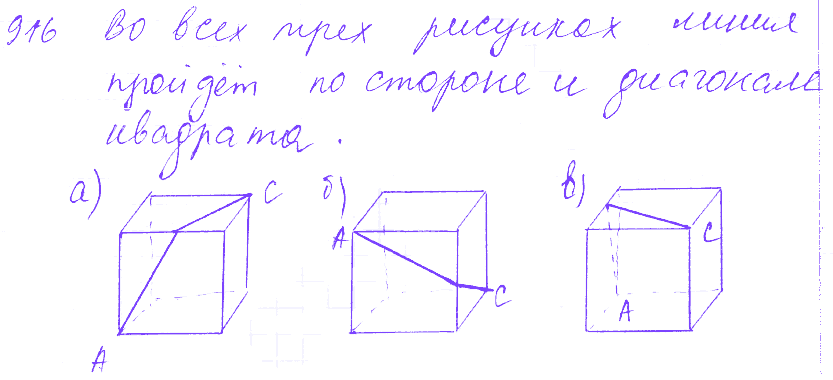 916 Во всех трех рисунках линия
пройдёт по стороне и диагонале
квадрата.
а) С б) в)
А С
С А
А